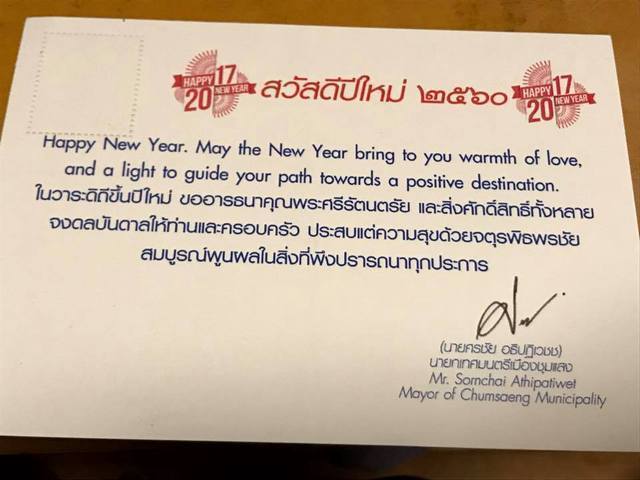 HAPPY 2017 NEW YEAR สวัสดีปีใหม่ ๒๕๖๐ HAPPY 2017 NEW YEAR
Happy New Year. May the New Year bring to you warmth of love,
and a light to guide your path towards a positive destination.
ในวาระดิถีขึ้นปีใหม่ ขออาราธนาคุณพระศรีรัตนตรัย และสิ่งศักดิ์สิทธิ์ทั้งหลาย
จงดลบันดาลให้ท่านและครอบครัว ประสบแต่ความสุขด้วยจตุรพิธพรชัย
สมบูรณ์พูนผลในสิ่งที่พึงปรารถนาทุกประการ
(นายศรชัย อธิปฏิเวชช)
นายกเทศมนตรีเมืองชุมแสง
Mr. Sornchai Athipatiwet
Mayor of Chumsaeng Municipality